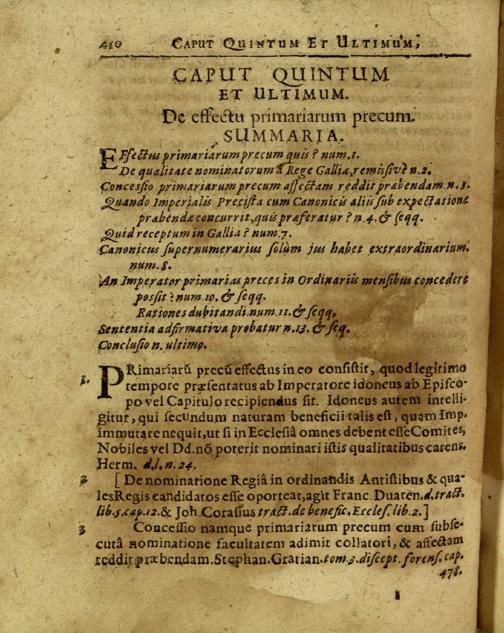 420 CAPUT QUINTUM ET ULTIMUM,
CAPUT QUINTUM
ET ULTIMUM.
De effectu primariarum precum.
SUMMARIA.
EFfectus primariarum precum quis? num. 1.
De qualitate nominatorum à Rege Galliæ, remissivè n. 2.
Concessio primariarum precum affectam reddit præbendam. n. 3.
Quando Imperialis Precista cum Canonicis aliis sub expectatione
præbendæ concurrit, quis præferatur? n. 4. & seqq.
Quid receptum in Gallia? num. 7.
Canonicus supernumerarius solùm jus habet extraordinarium.
num. 8.
An Imperator primarias preces in Ordinariis mensibus concedere
possit? num. 10. & seqq.
Rationes dubitandi num. 11. & seqq.
Sententia adfirmativa probatur n. 13. & seq.
Conclusio n. ultimo.
1. PRimariarũ precũ effectus in eo consistit, quod legitimo
tempore præsentatus ab Imperatore idoneus ab Episco-
po vel Capitulo recipiendus sit. Idoneus autem intelli-
gitur, qui secundum naturam beneficii talis est, quam Imp.
immutare nequit, ut si in Ecclesiâ omnes debent esse Comites,
Nobiles vel Dd. nõ poterit nominari istis qualitatibus carens.
Herm. d. l. n. 24.
2 [ De nominatione Regiâ in ordinandis Antistibus & qua-
les Regis candidatos esse oporteat, agit Franc. Duaren. d. tract.
lib. 5. cap. 12. & Joh. Corassus tract. de benefic. Eccles. lib. 2. ]
3 Concessio namque primariarum precum cum subse-
cutâ nominatione facultatem adimit collatori, & affectam
reddit præbendam. Stephan. Gratian. tom. 3. discept. forens. cap.
478.